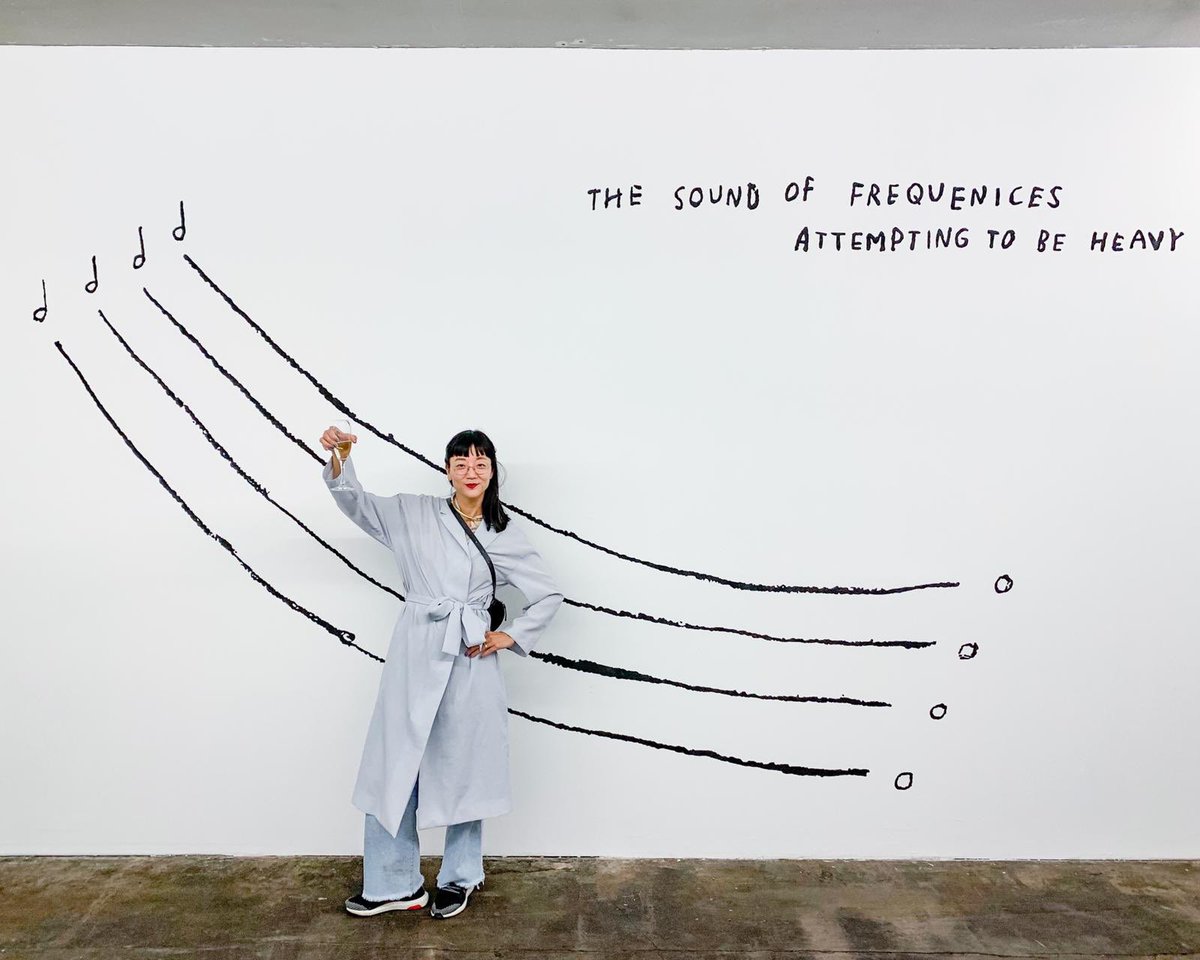 THE SOUND OF FREQUENICES
ATTEMPTING TO BE HEAVY